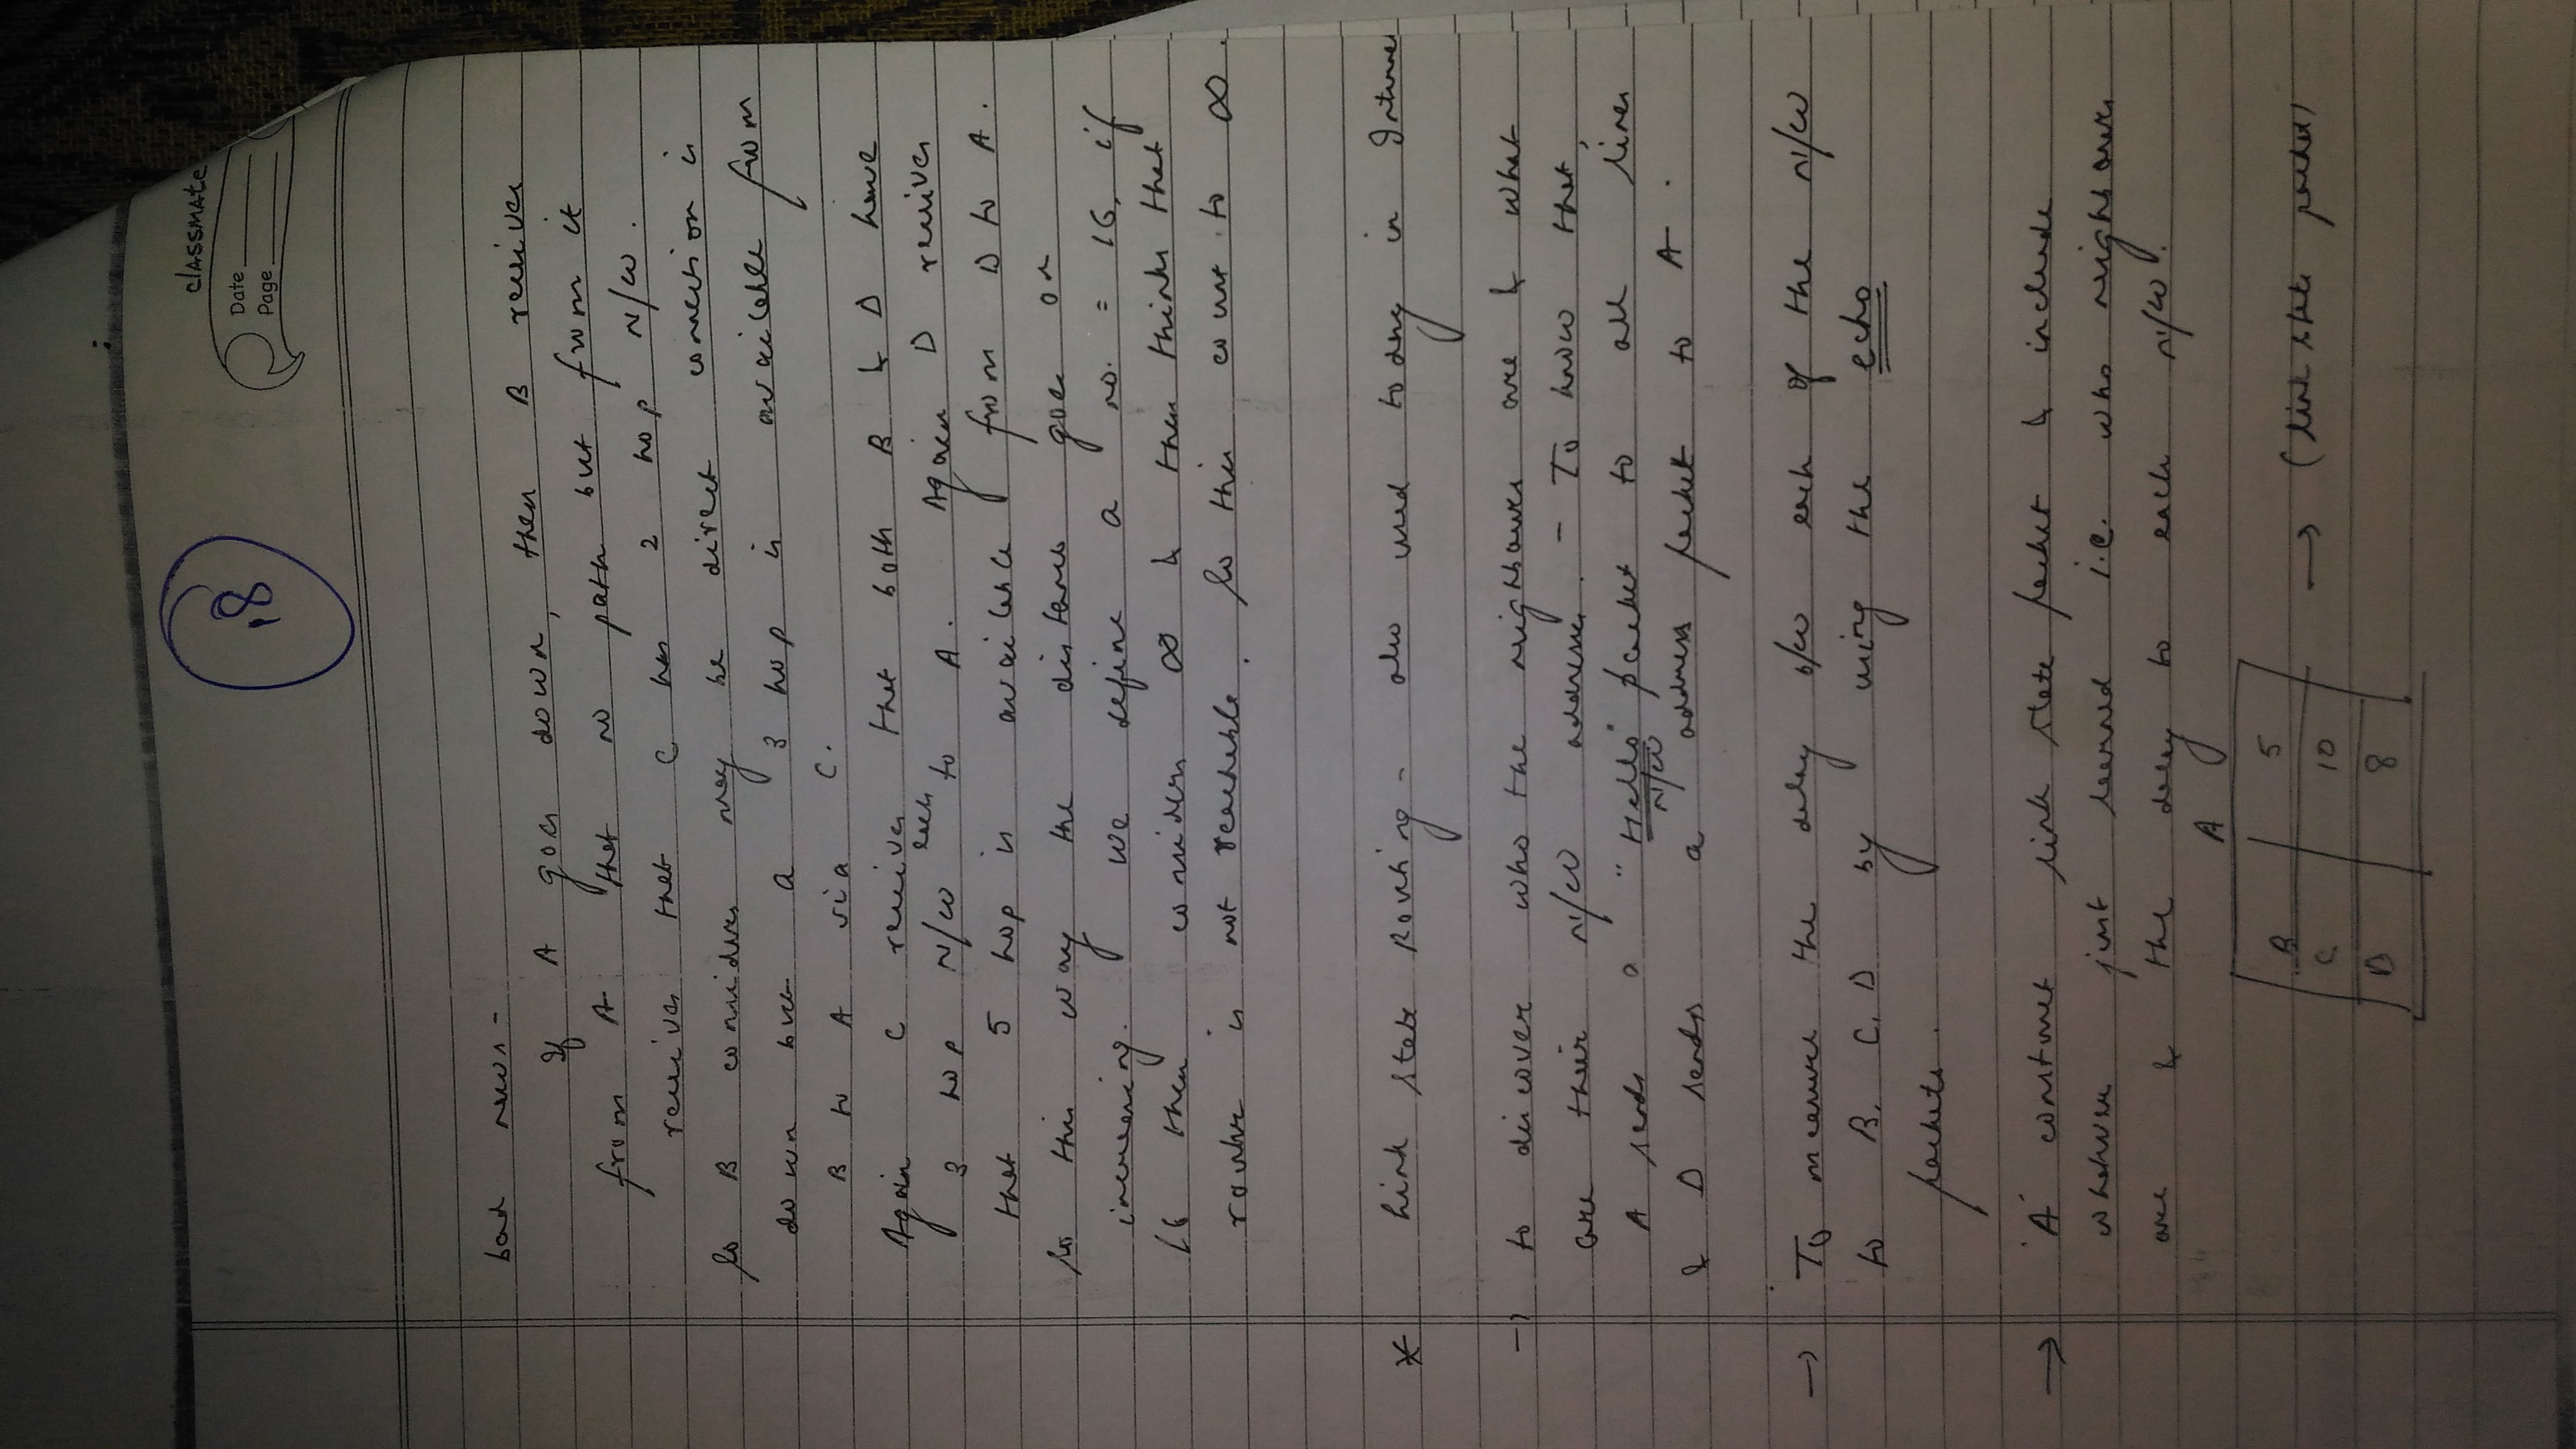 classmate
Date
Page
18
bad news -
If A goes down, then B receives
from A that no path but from it
receives that C has 2 hop N/w.
So B considers may be direct connection is
down but a 3 hop is available from
B to A via C.
Again C receives that both B & D have
3 hop N/w each to A. Again D receives
that 5 hop is available from D to A.
So this way the distance goes on
increasing. we define a no. = 16, if
16 then considers ∞ & then thinks that
router is not reachable. So this count to ∞
* Link State Routing - also used today in Internet
→ to discover who the neighbours are & what
are their N/w address. - To know that,
A sends a "Hello" packet to all lines
& D sends a N/w address packet to A.
→ To measure the delay b/w each of the N/w
to B, C, D by using the echo
packets.
→ 'A' construct link state packet & include
whatever just learned i.e. who neighbours
are & the delay to each N/w.
A
B 5
C 10 → (link state packet)
D 8